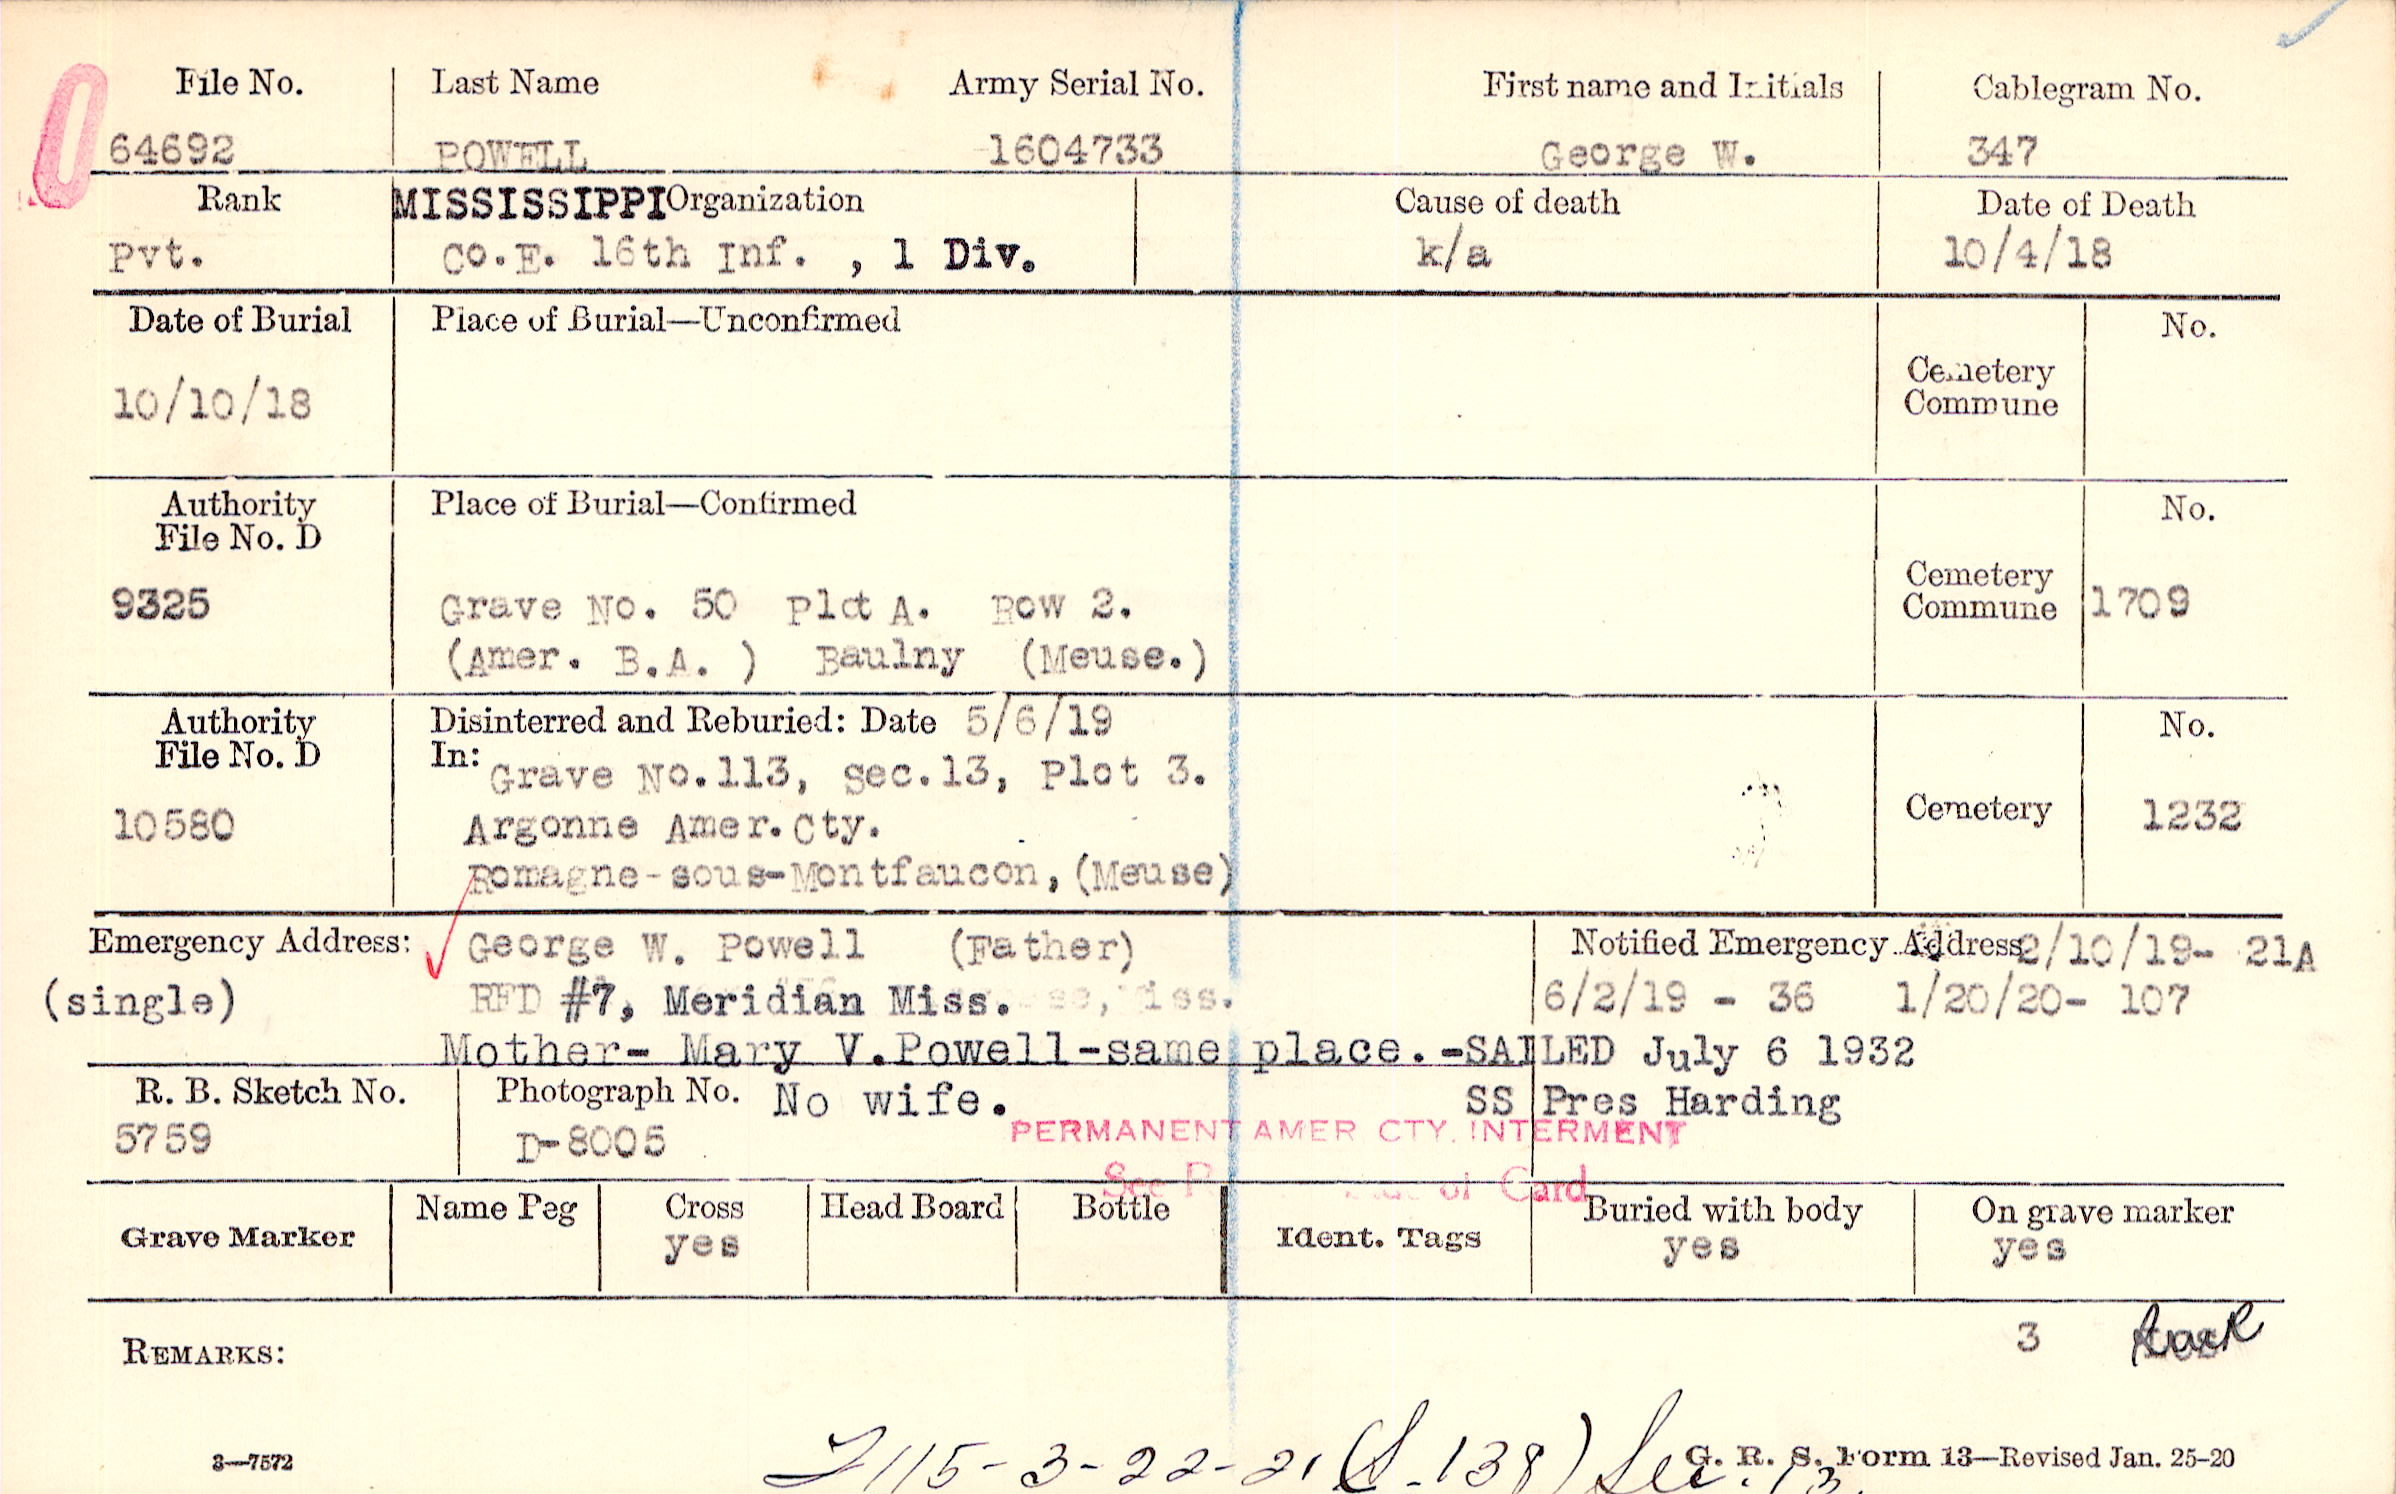 File No. Last Name Army Serial No. First name and Initials Cablegram No.
64692 POWELL 1604733 George W. 347
Rank MISSISSIPPI Organization Cause of death Date of Death
Pvt. Co.E. 16th Inf. , 1 Div. k/a 10/4/18
Date of Burial Place of Burial—Unconfirmed No.
10/10/18 Cemetery
Commune
Authority Place of Burial—Confirmed No.
File No. D
9325 Grave No. 50 Plot A. Row 2. Cemetery
Commune 1709
(Amer. B.A. ) Baulny (Meuse.)
Authority Disinterred and Reburied: Date 5/6/19 No.
File No. D In: Grave No.113, Sec.13, Plot 3.
10580 Argonne Amer.Cty. Cemetery 1232
Romagne-sous-Montfaucon, (Meuse)
Emergency Address: George W. Powell (Father) Notified Emergency Address 2/10/19- 21A
(single) RFD #7, Meridian Miss. iss. 6/2/19 - 36 1/20/20- 107
Mother- Mary V.Powell-same place.-SAILED July 6 1932
R. B. Sketch No. Photograph No. No wife. SS Pres Harding
5759 D-8005 PERMANENT AMER CTY. INTERMENT
See of Card
Grave Marker Name Peg Cross Head Board Bottle Ident. Tags Buried with body On grave marker
yes yes yes
3
REMARKS:
115-3-22-21 (S-138) Sec. 13
3—7572 G. R. S. Form 13—Revised Jan. 25-20